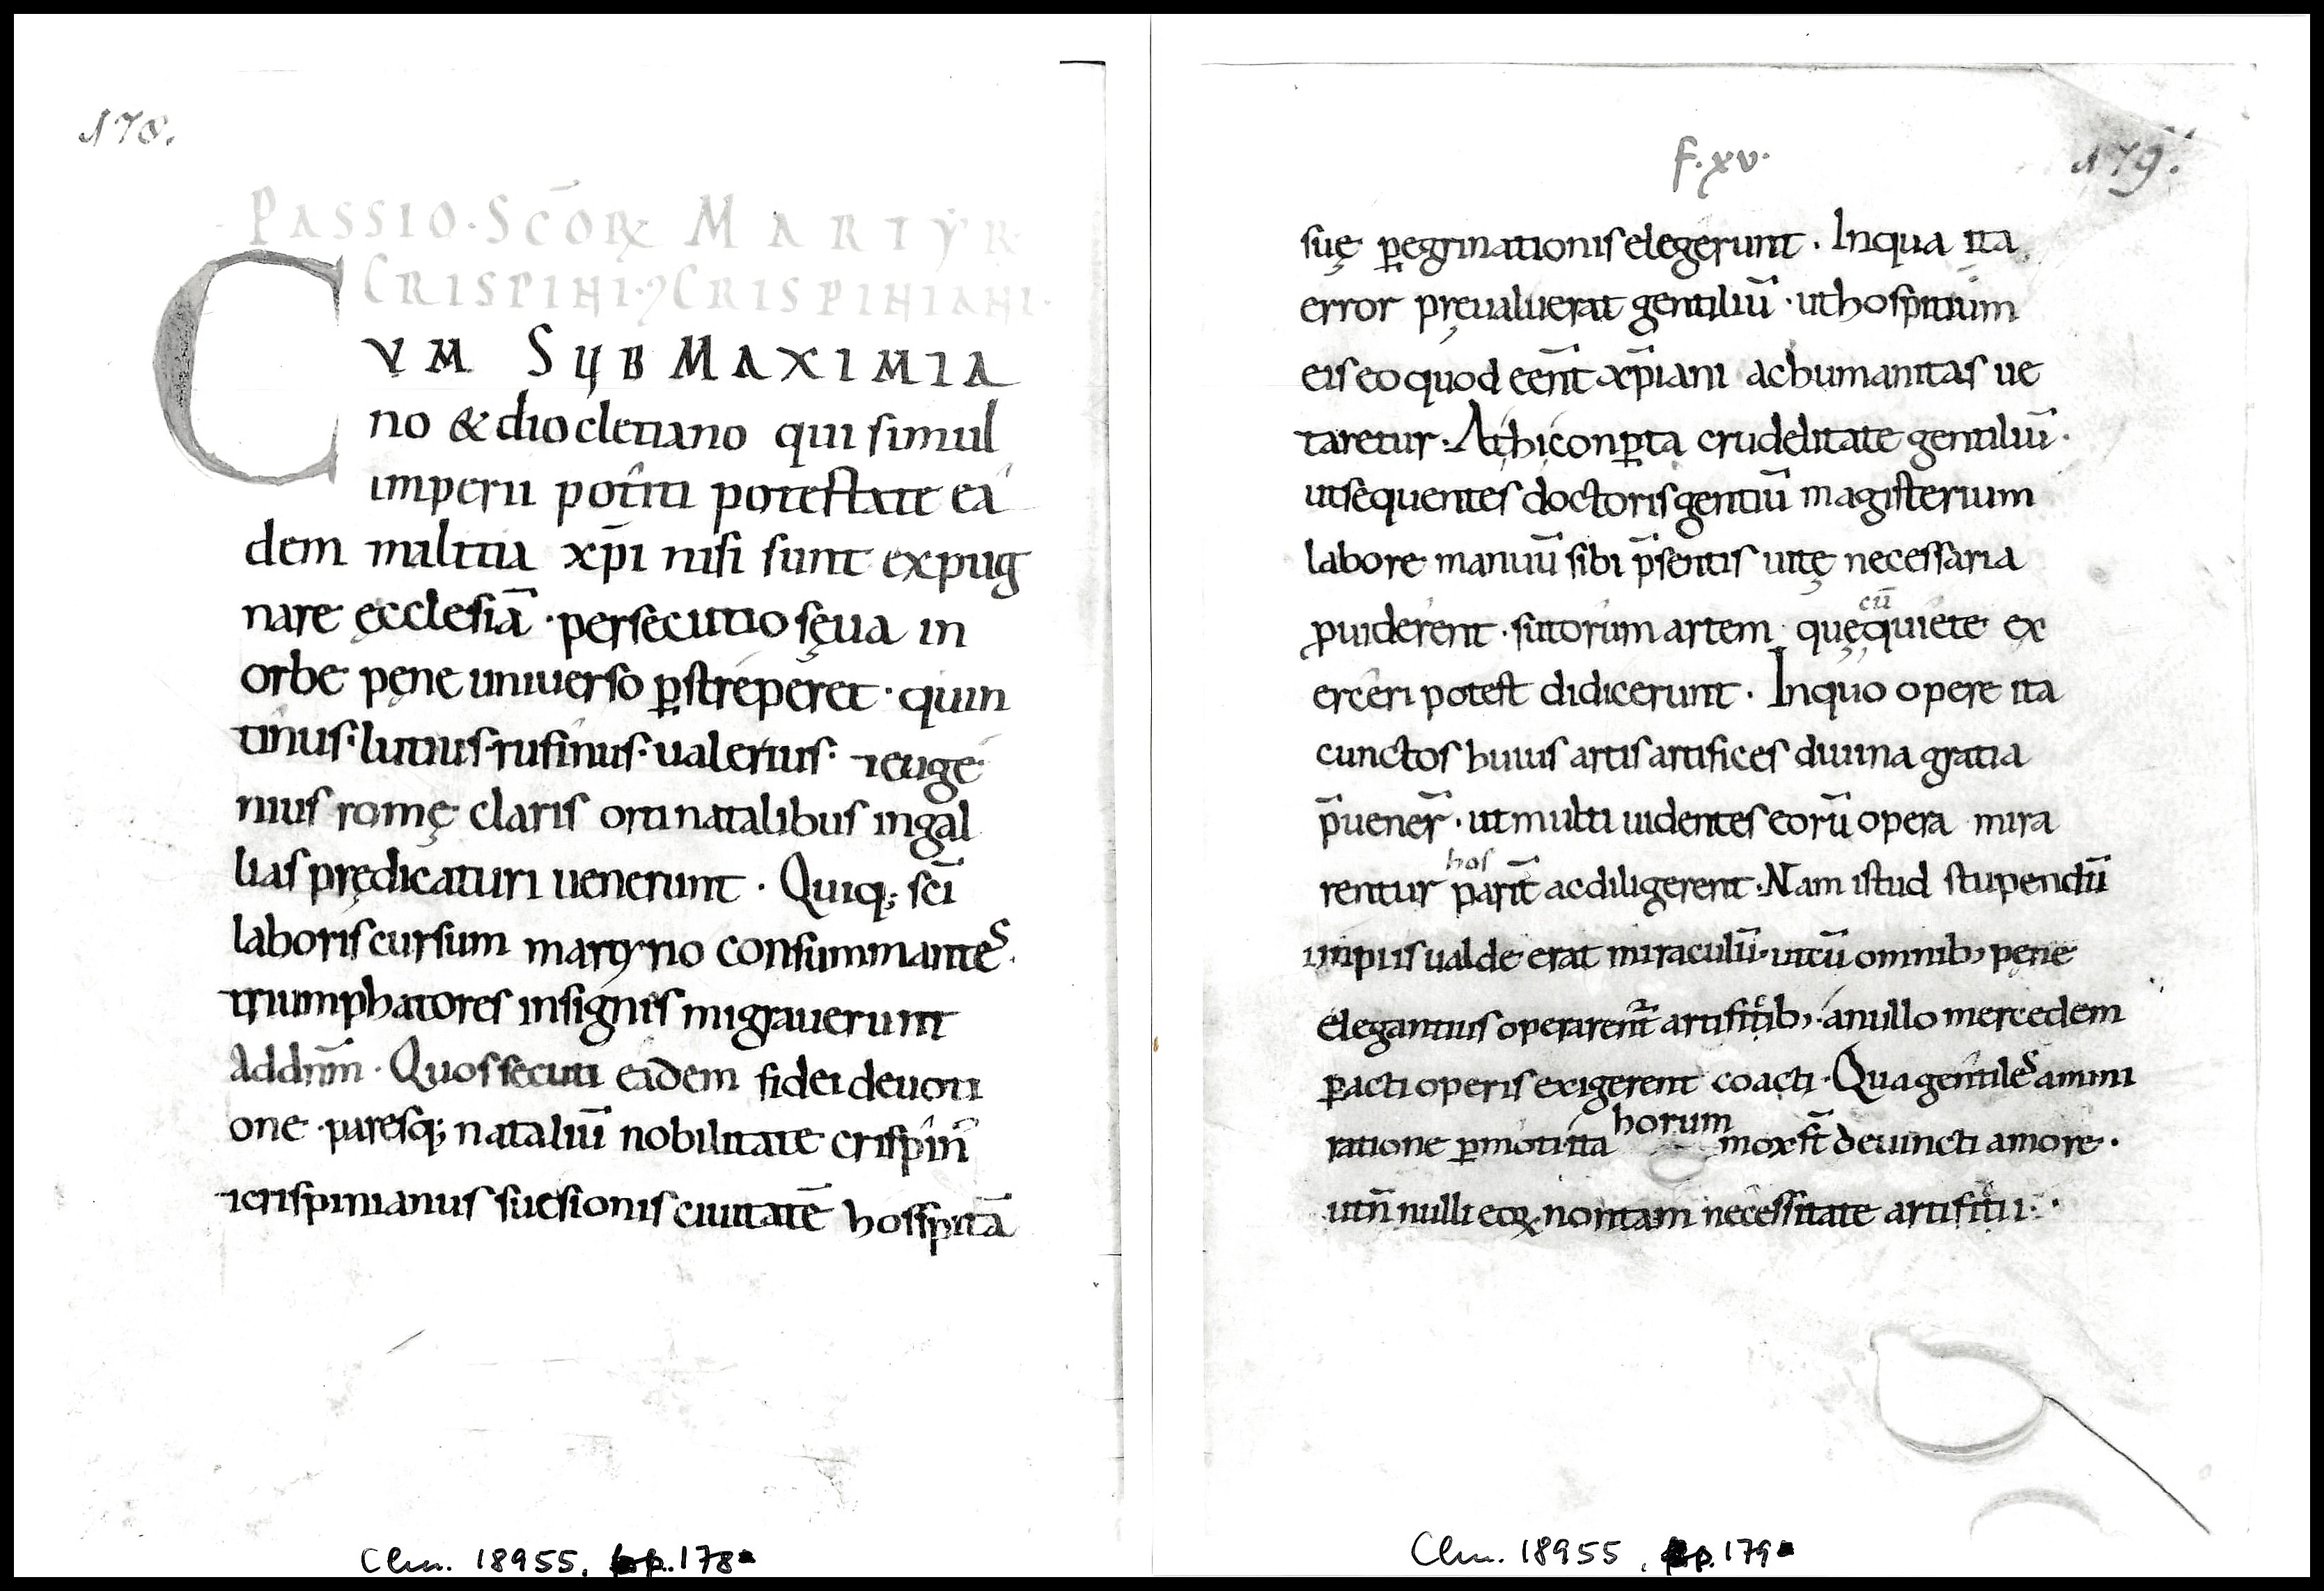 178.
PASSIO · SC̄OꝜ MARTYR
CRISPINI · ⁊ CRISPINIANI ·
CVM SUB MAXIMIA
no & diocletiano qui simul
imperii potiti potestate eā
dem militia xp̄i nisi sunt expug
nare ęcclesiā · persecutio sęua in
orbe pęne uniuerso ꝑstreperet · quin
tinus · lutius · rufinus · ualerius · ⁊ euge
nius romę claris orti natalibus in gal
lias prędicaturi uenerunt · Quiq; sc̄i
laboris cursum martyrio consummantes ·
triumphatores insignis migrauerunt
ad dn̄m · Quos secuti eidem fidei deuoti
one · paresq; nataliū nobilitate crispin̄
⁊ crispinianus suesionis ciuitatē hosspitā
f. xv.
179.
suę ꝑegrinationis elegerunt · In qua ita
error pręualuerat gentiliū · ut hospitium
eis eo quod eēnt xp̄iani ac humanitas ue
taretur · At hi conꝑta crudelitate gentiliū ·
ut sequentes doctoris gentiū magisterium
labore manuū sibi p̄sentis uitę necessaria
ꝓuiderent · sutorum artem · quę
cū
quiete ex
erceri potest didicerunt · In quo opere ita
cunctos huius artis artifices diuina gratia
p̄uener̄ · ut multi uidentes eorū opera mira
rentur
hos
parit̄ ac diligerent · Nam istud stupendū
impiis ualde erat miraculū · ut cū omnib; pęne
elegantius operarent̄ artificib; · a nullo mercedem
ꝑacti operis exigerent coacti · Qua gentiles ammi
ratione ꝑmoti ita
horum
mox st̄ deuincti amore ·
ut n̄ nulli eoꝝ non tam necessitate artificii ·
Clm. 18955, p. 178
Clm. 18955, p. 179